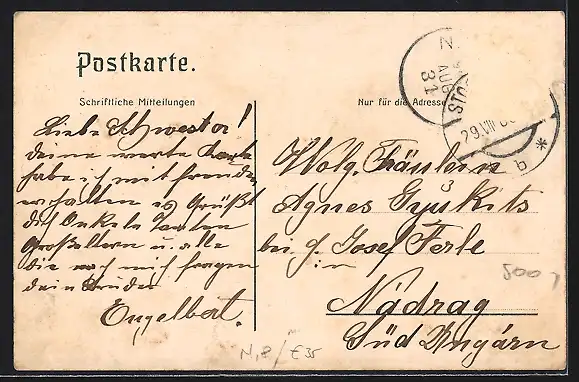 Postkarte.
Schriftliche Mitteilungen
Nur für die Adresse
Liebe Schwester!
deine werte Karte
habe ich mit Freuden
erhalten es Grüßt
dich Onkele Tanten
Großeltern u. alle
die nach mich fragen
dein Bruder
Engelbert.
Wolg. Fräulein
Agnes Gyukits
bei H. Josef Ferle
in
Nádrag
Süd Ungarn
AUG
31
29.VIII
b *
N,8/E35